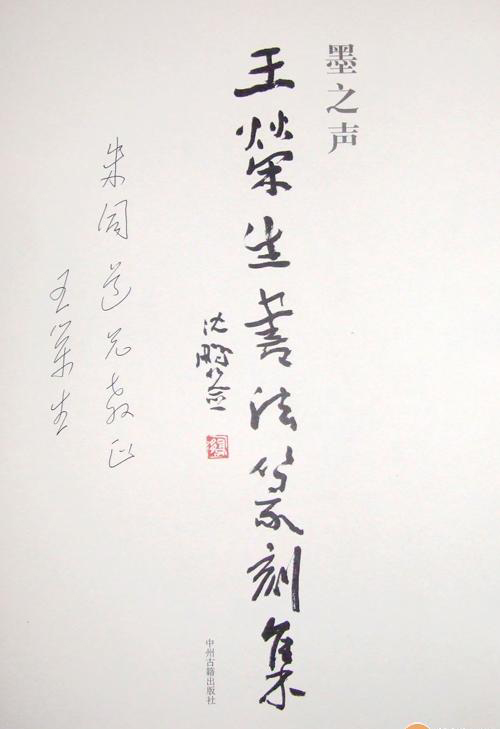 墨之声
王荣生書法篆刻集
沈鹏签
中州古籍出版社
朱同道兄教正
王荣生